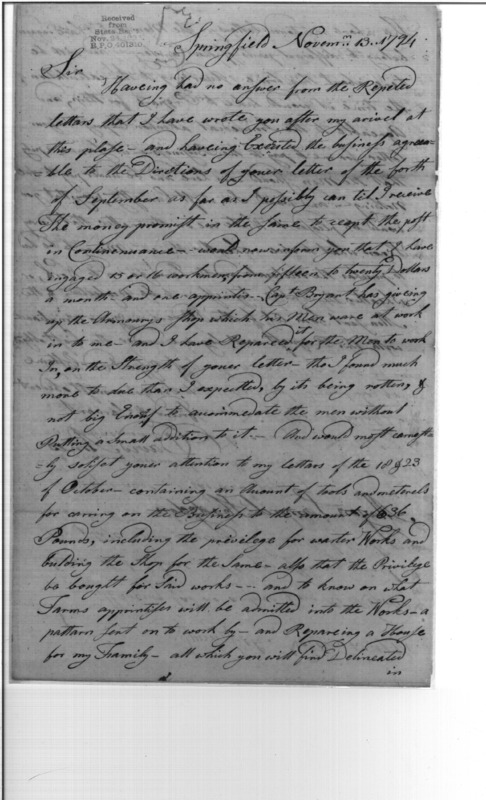 Received
from
State
Nov.
E.F.O 401210
Springfield Novemr 13. 1794
Sir
Haveing had no answer from the Repeted
letters that I have wrote you after my arivel at
this plase – and haveing Exerted the business agreea
ble to the Directions of youer letter of the forth
of September as far as I possibly can til I receive
the money promist in the same to except the post
in Continenuance – would now inform you that I have
engaged 15 or 16 workmen from fifteen to twenty Dollars
a month and one apprintis – Capt Bryant has giveing
up the Armourys Shop which his Men ware at work
in to me – and I have Repareed it for the Men to work
In, on the Strength of youer letter – tho I found much
more to due than I expected, by its being rotten, &
not big Enouf to accommedate the men without
Putting a small addition to it – And would most earnest
=ly solisat youer attention to my letters of the 18 & 23
of October – containing an Amount of tools and meterels
for carring on the Business to the amount of 636
Pounds, including the privilege for warter Works and
building the Shop for the Same – also that the Privilege
be bought for said works – – and to know on what
Tarms apprintises will be admitted into the Works – a
pattarn sent on to work by – and Repareing a House
for my Framily – all which you will find Delineated
in